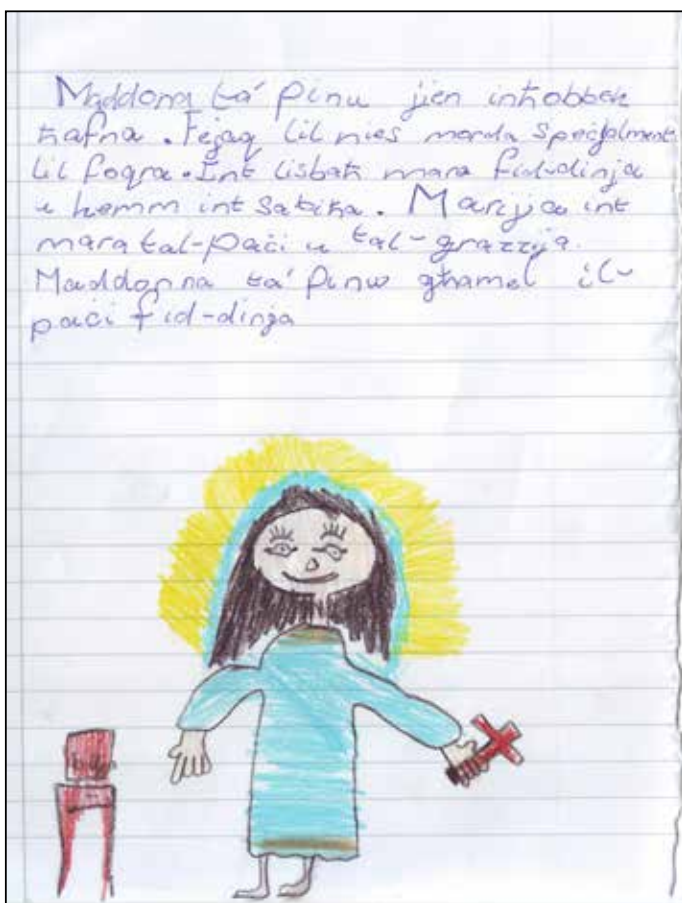 Maddona ta' Pinu jien inħobbok
ħafna. Fejaq lil nies morda speċjalment
lil foqra. Int lisbaħ mara fid-dinja
u hemm int sabiħa. Marija int
mara tal-paċi u tal-grazzja.
Maddonna ta' Pinu għamel il-
paċi fid-dinja